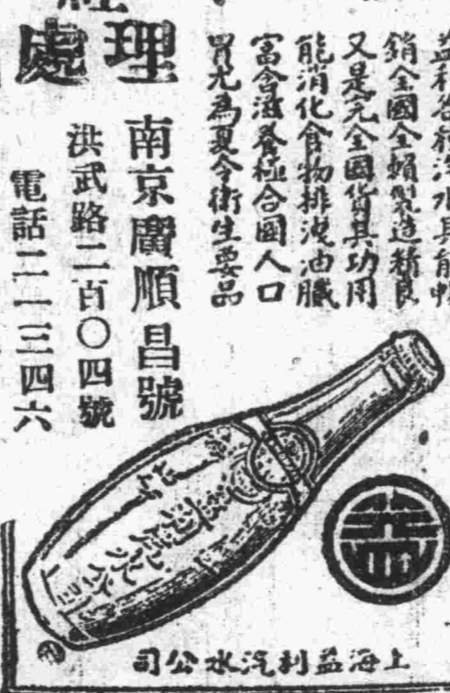 益利各種汽水其能暢
銷全國全賴製造精良
又是完全國貨其功用
能消化食物排洩油膩
富含滋養極合國人口
胃尤為夏令衛生要品
經理處
南京廣順昌號
洪武路二百〇四號
電話二一三四六
上海益利汽水公司